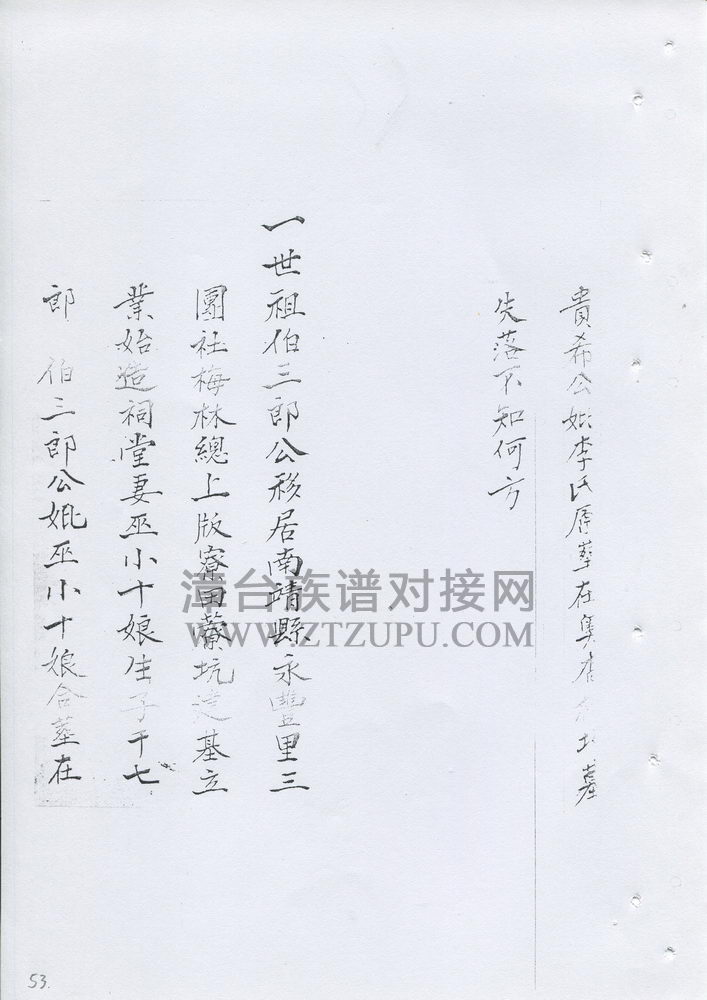 貴希公妣李氏厝葬在 墓
失落不知何方
一世祖伯三郎公移居南靖縣永豐里三
團社梅林總上版寮田 坑 基立
業始造祠堂妻巫小十娘生子千七
郎 伯三郎公妣巫小十娘合葬在
漳台族谱对接网
WWW.ZTZUPU.COM
53.